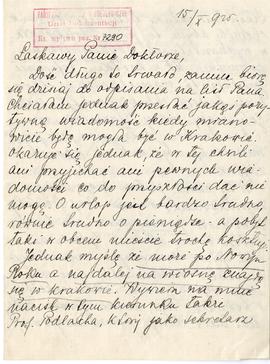 15/X 925.
Nr. wpływu 7290
Łaskawy Panie Doktorze,
Dość długo to trwało, zanim biorę
się dzisiaj do odpisania na list Pana
Chciałam jednak przesłać jakąś pozy-
tywną wiadomość kiedy miano-
wicie będę mogła być w Krakowie.
Okazuje się jednak, że w tej chwili
ani przyjechać ani pewnych wia-
domości co do przyszłości dać nie
mogę. O urlop jest bardzo trudno,
również trudno o pieniądze - a pobyt
taki w obcem mieście trochę kosztuje.
Jednak myślę że może po Nowym
Roku a najdalej na wiosnę znajdę
się w Krakowie. Wywiera na mnie
nacisk w tym kierunku także
Prof. Podlacha, który jako sekretarz